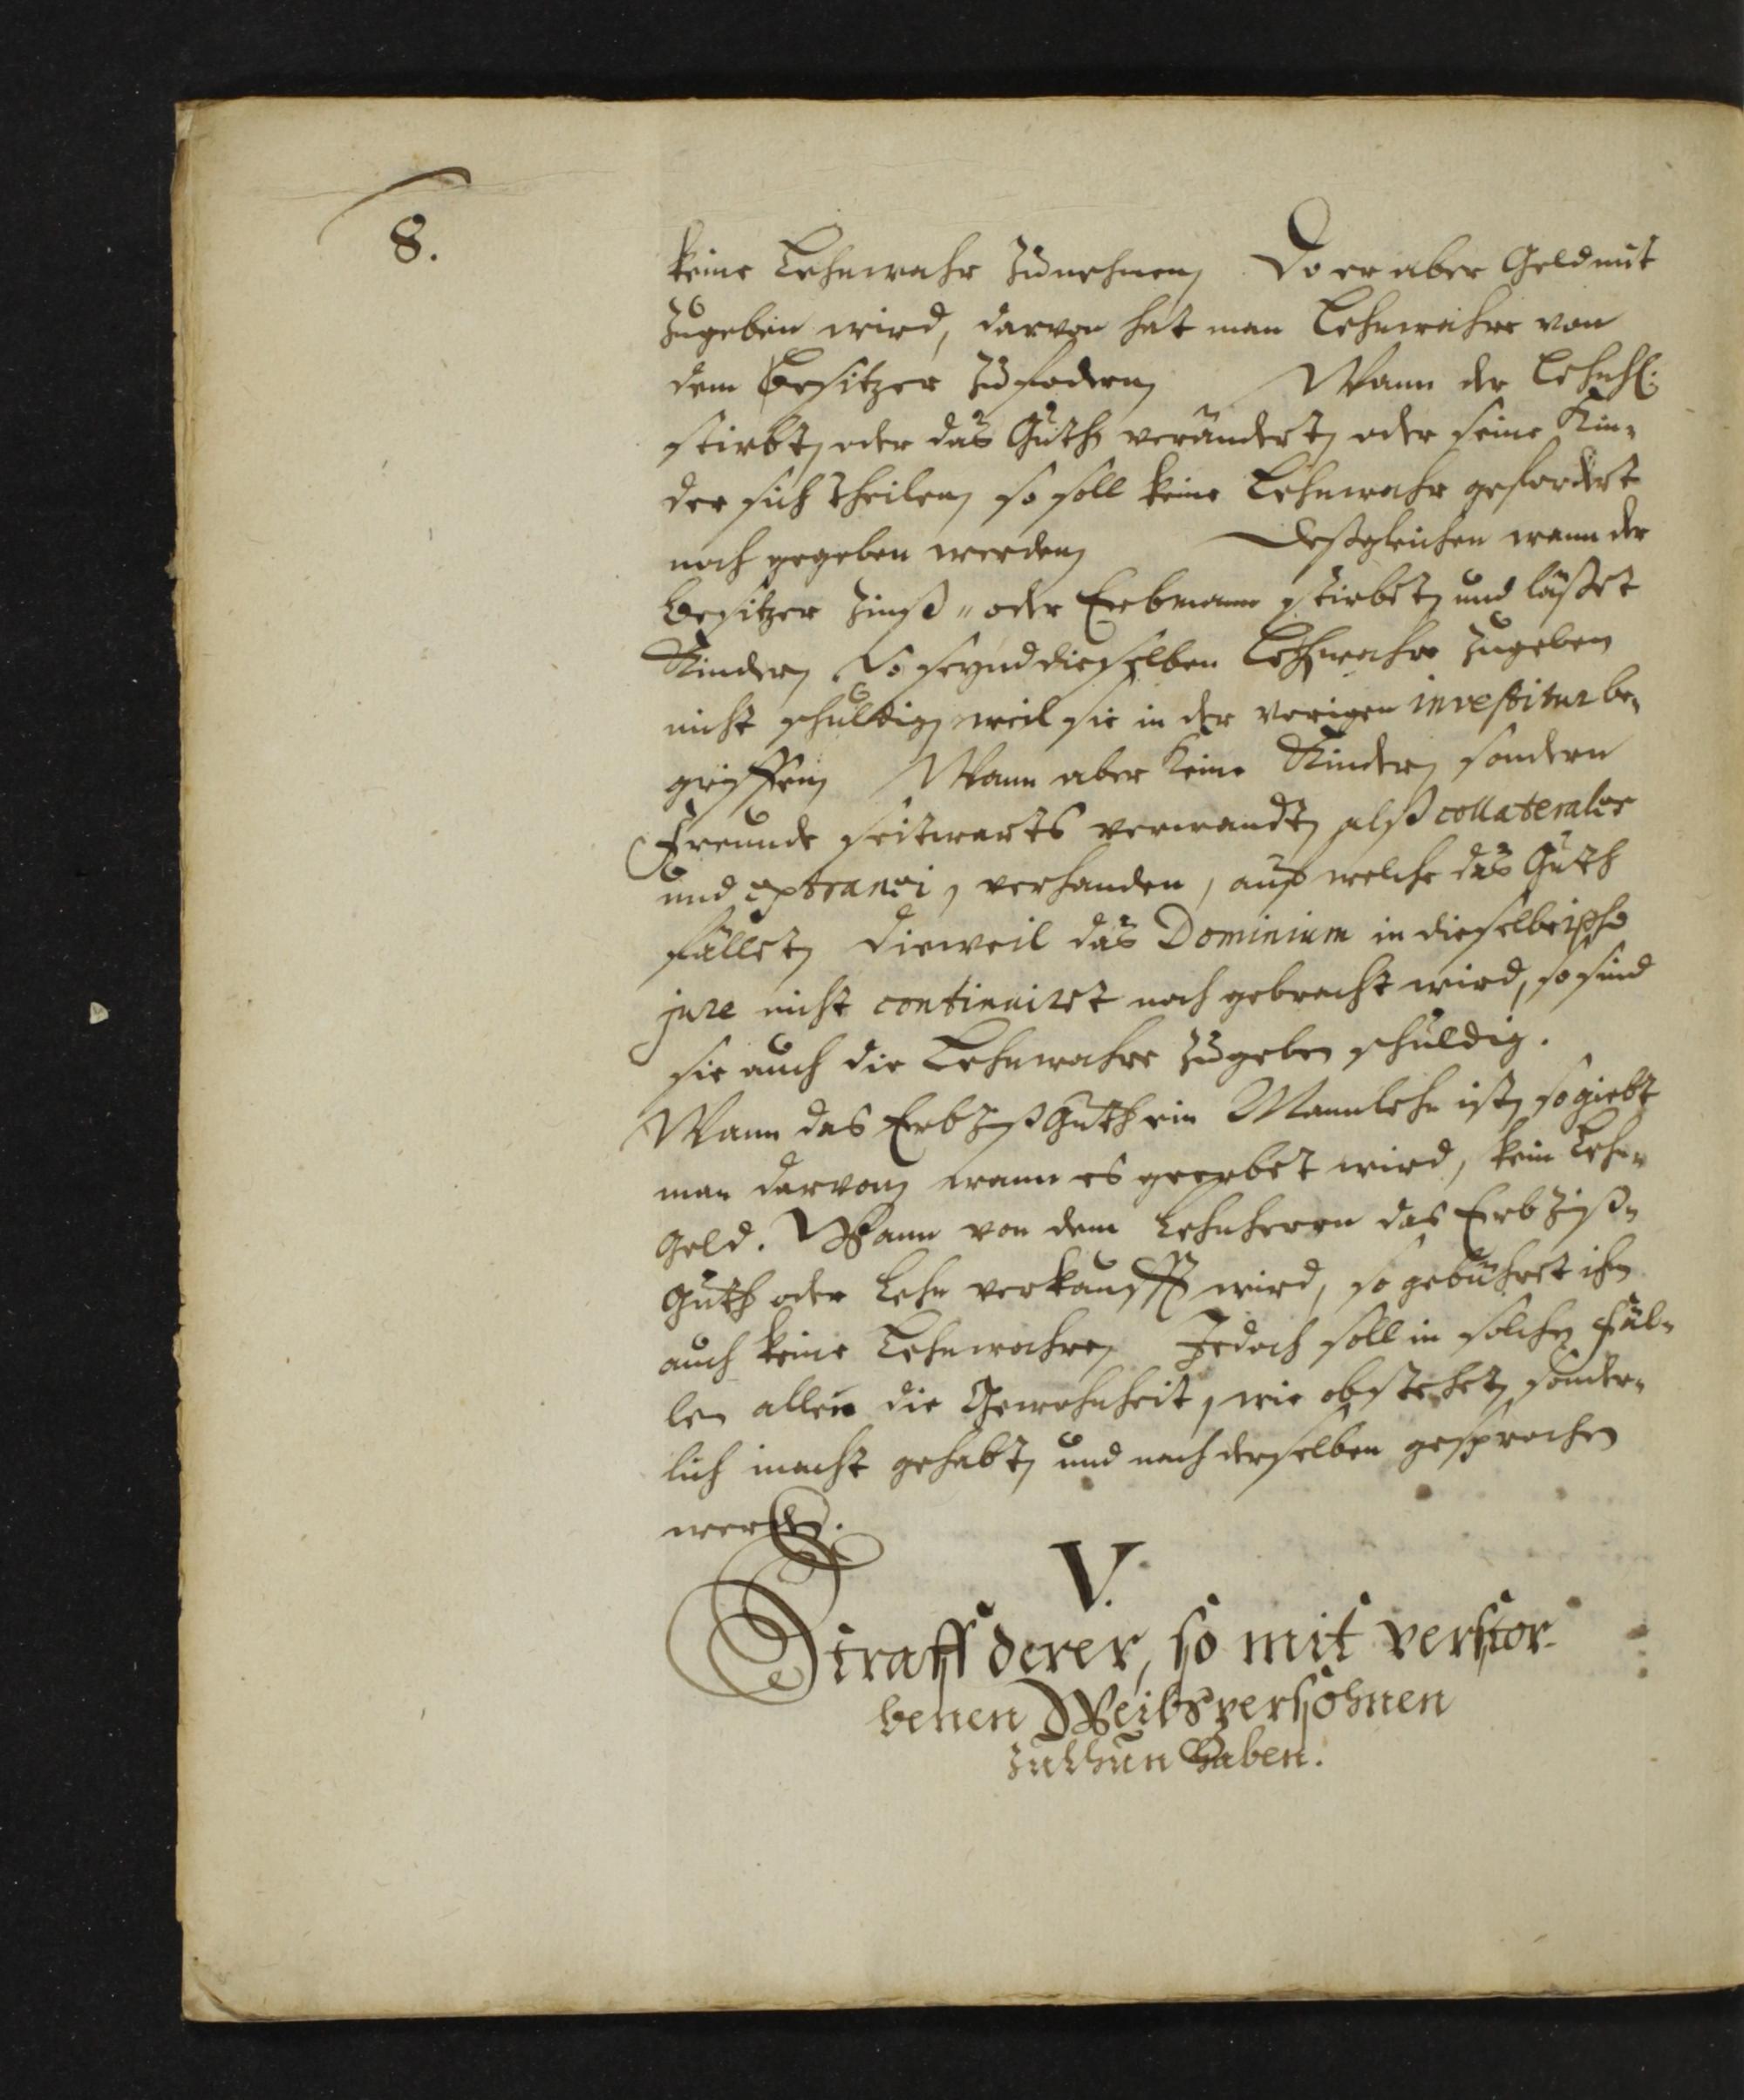 8.
keine Lehnwahr zu nehmen, Do er aber Geld mit
zugeben wird, darvon hat man Lehnwahre von
dem Besitzer zu fodern, Wann der Lehnh:
stirbt, oder das Guth verändert, oder seine Kin-
der sich theilen, so soll keine Lehnwahr gefordert
noch gegeben werden, Deßgleichen wann der
Besitzer Zinß- oder Erbmann stirbet, und läßet
Kinder, So seynd dieselben Lehnwahre zugeben
nicht schuldig, weil sie in der vorigen investitur be-
griffen, Wann aber keine Kinder, sondern
Freunde seitwarts verwandt, alß collaterales
und extranei, verhanden, auf welche das Guth
fället, dieweil das Dominium in dieselbe ipso
jure nicht continuiret noch gebracht wird, so sind
sie auch die Lehnwahre zugeben schuldig.
Wann das Erbzinßguth ein Mannlehn ist, so giebt
man darvon, wann es geerbet wird, kein Lehn-
geld. Wann von dem Lehnherrn das Erbzinß-
guth oder Lehn verkaufft wird, so gebühret ihm
auch keine Lehnwahre, Jedoch soll in solchen Fäl-
len allen die Gewohnheit, wie obstehet, sonder-
lich inacht gehabt, und nach derselben gesprochen
werden.
V.
Straff derer, so mit verstor-
benen Weibspersohnen
zuthun haben.